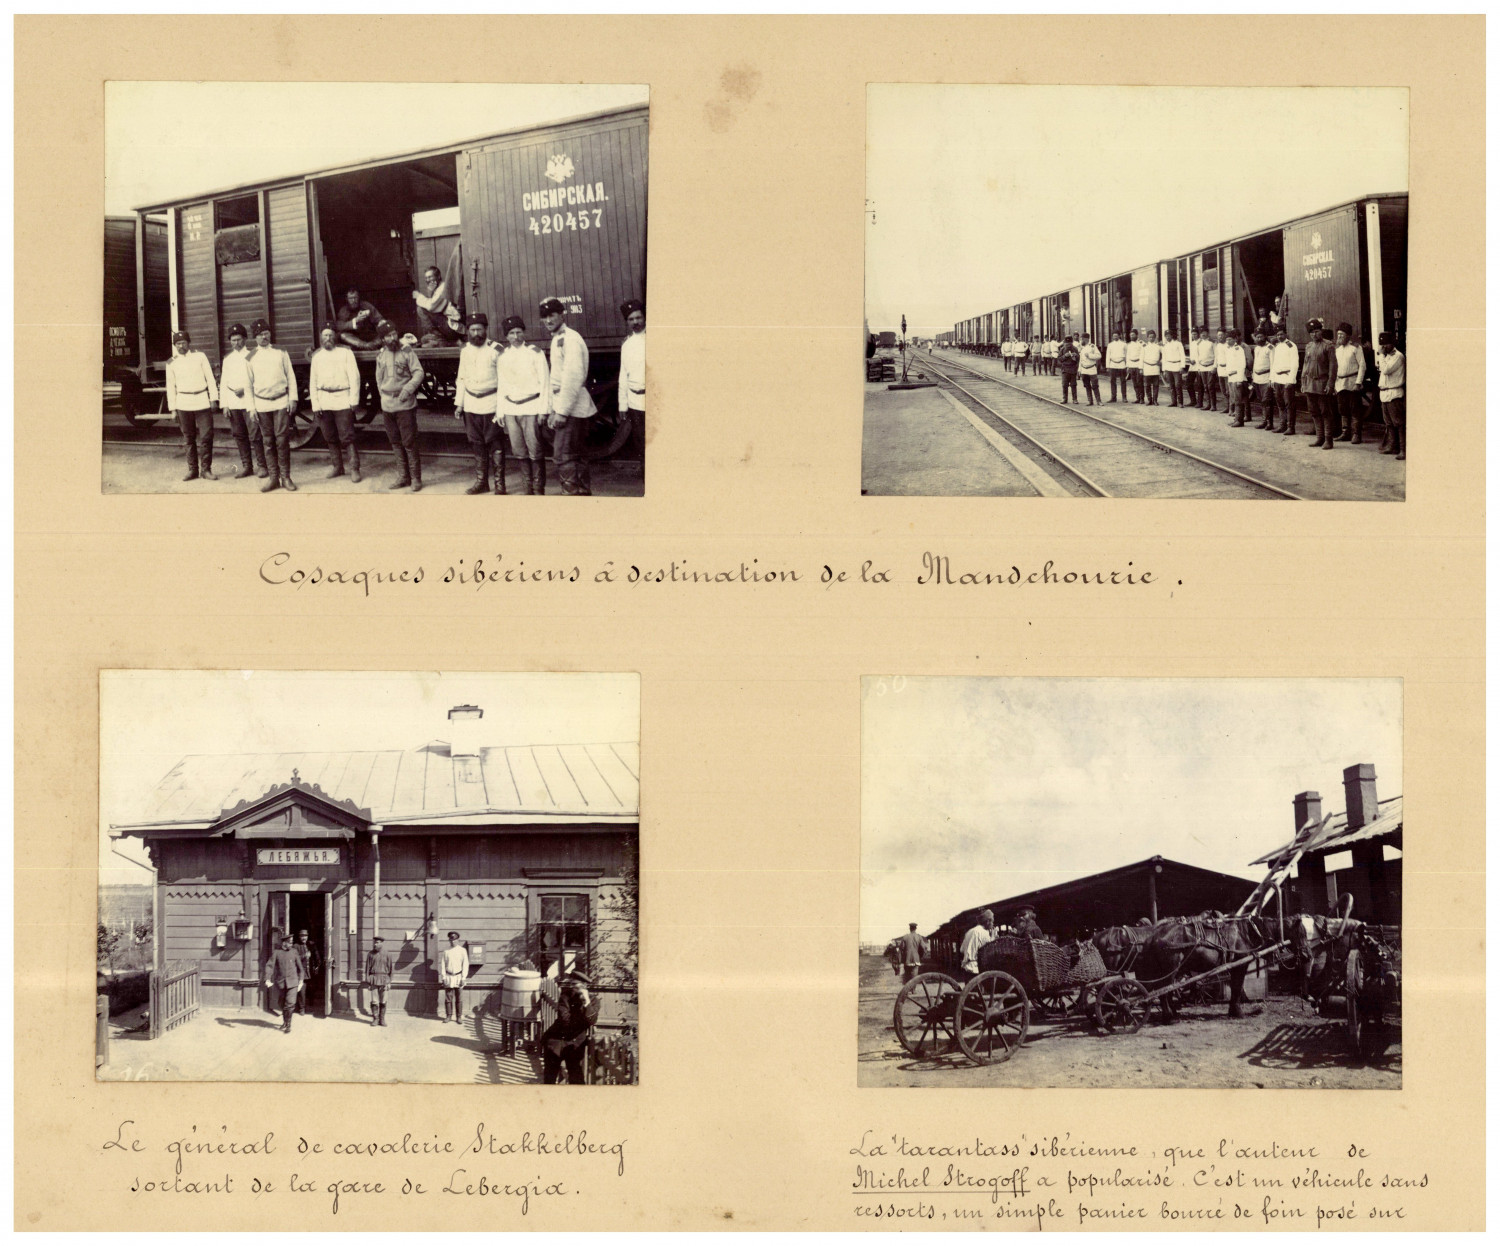 СИБИРСКАЯ.
420457
СИБИРСКАЯ.
420457
Cosaques sibériens à destination de la Mandchourie.
50
ЛЕБЯЖЬЯ.
Le général de cavalerie Stakkelberg
sortant de la gare de Lebergia.
La "tarantass" sibérienne, que l'auteur de
Michel Strogoff a popularisé. C'est un véhicule sans
ressorts, un simple panier bourré de foin posé sur